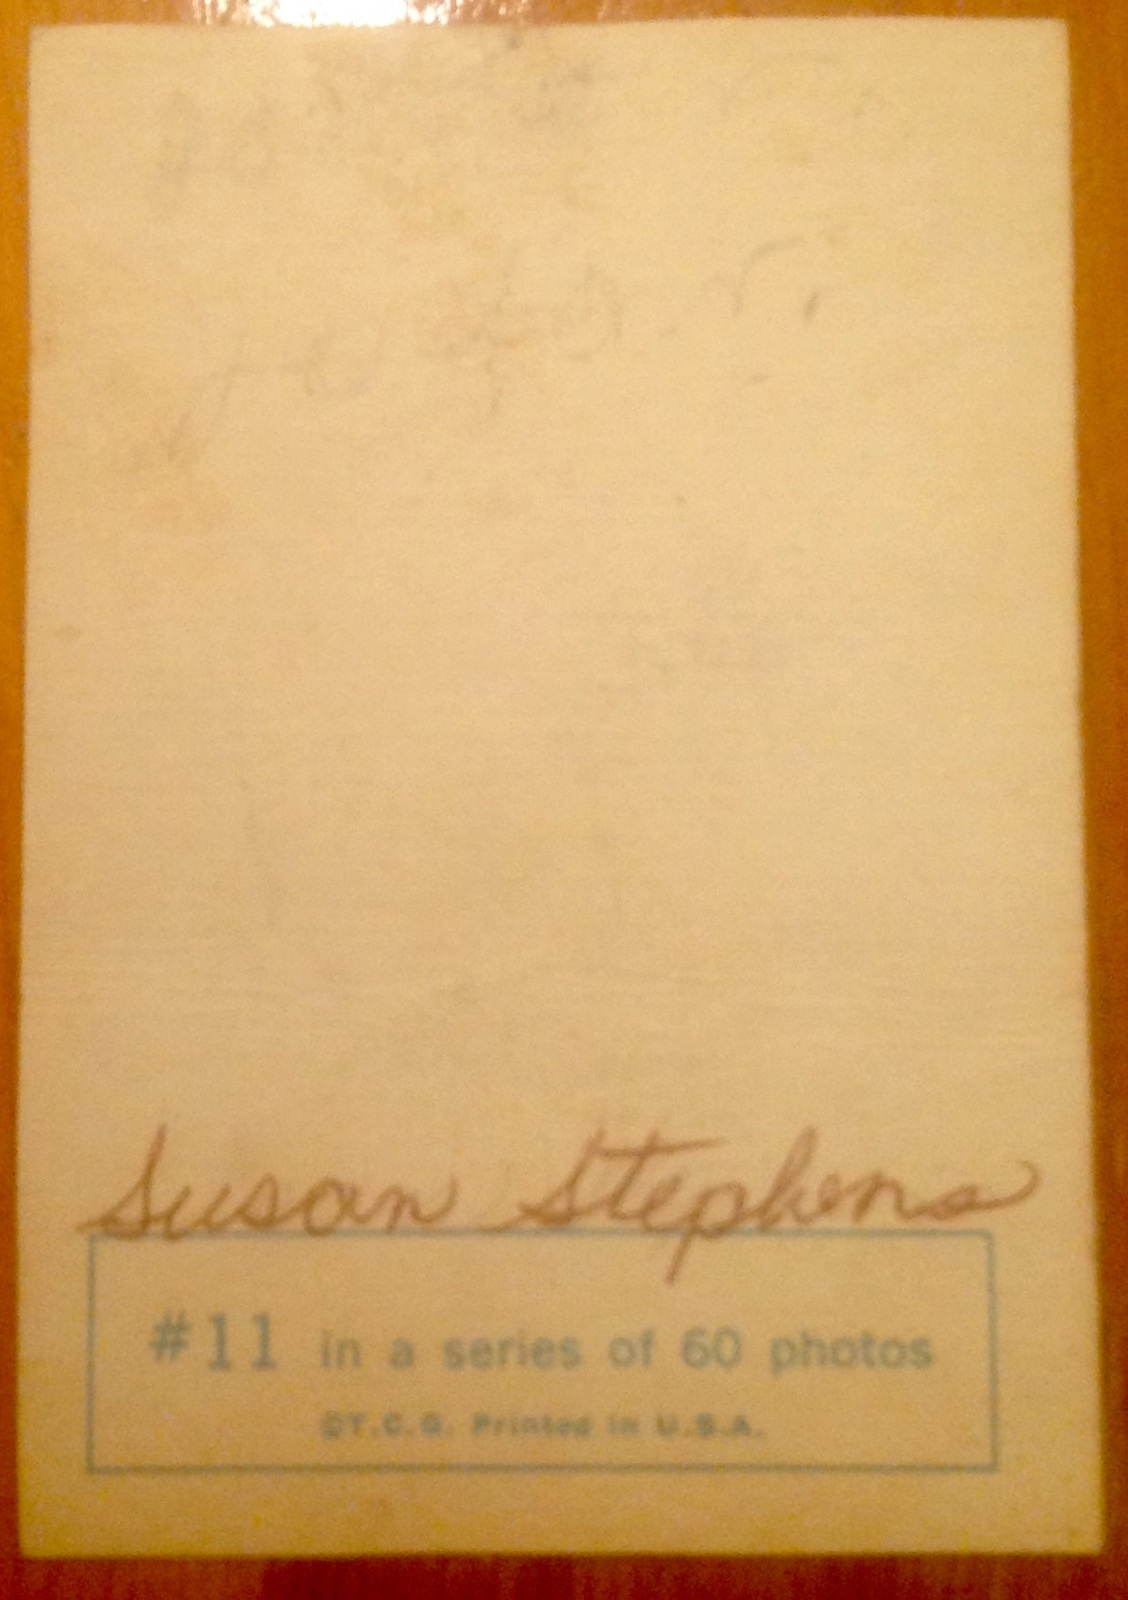 Susan Stephens
#11 in a series of 60 photos
©T.C.G. Printed in U.S.A.